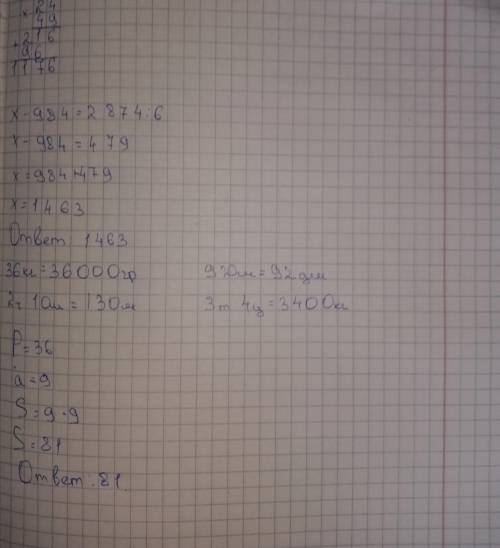 × 24
49
+ 216
96
1176
x - 984 = 2 874 : 6
x - 984 = 479
x = 984 + 479
x = 1463
Ответ 1463
36кг = 36000гр 920см = 92дм
2ч 10м = 130м 3т 4ц = 3400кг
P = 36
a = 9
S = 9 · 9
S = 81
Ответ : 81.